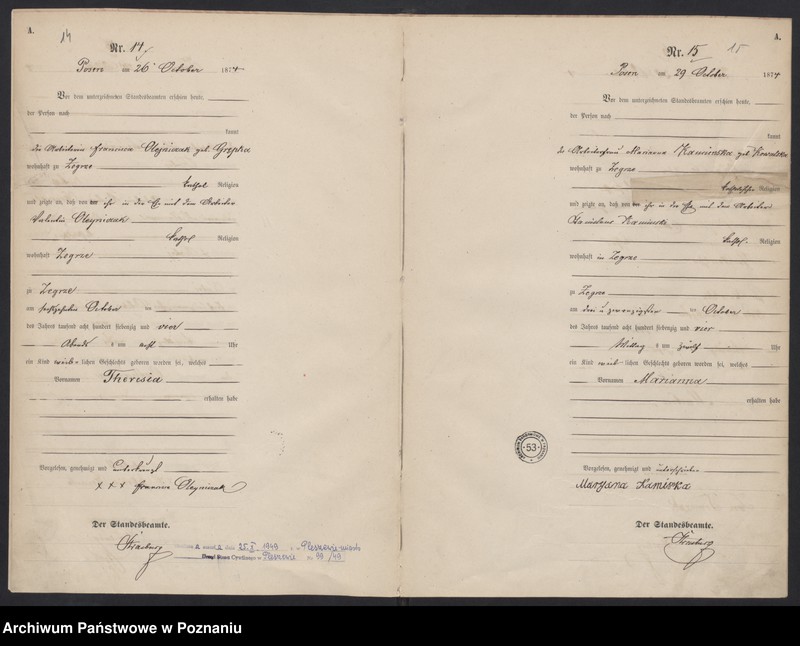 A.
14
Nr. 14
Posen am 26 October 1874
Vor dem unterzeichneten Standesbeamten erschien heute,
der Person nach
kannt
die Arbeiterin Franciska Olejniczak geb.
wohnhaft zu Zegrze
kathol Religion
und zeigte an, daß von ihr in der Ehe mit dem Arbeiter
Valentin Olejniczak
kathol Religion
wohnhaft Zegrze
zu Zegrze
am October
des Jahres tausend acht hundert siebenzig und vier
Abends um acht Uhr
ein Kind weib-lichen Geschlechts geboren worden sei, welches
Vornamen Theresia
erhalten habe
Vorgelesen, genehmigt und
x x x Olejniczak
Der Standesbeamte.
25.X 1949
99/49
A.
Nr. 15
15
Posen am 29 October 1874
Vor dem unterzeichneten Standesbeamten erschien heute,
der Person nach
kannt
die Arbeiterfrau Marianna Kaminska geb. Kowalska
wohnhaft zu Zegrze
katholische Religion
und zeigte an, daß von ihr in der Ehe mit dem Arbeiter
Stanislaus Kaminski
kathol. Religion
wohnhaft in Zegrze
zu Zegrze
am drei u zwanzigsten October
des Jahres tausend acht hundert siebenzig und vier
Mittag um zwölf Uhr
ein Kind weib-lichen Geschlechts geboren worden sei, welches
Vornamen Marianna
erhalten habe
53
Vorgelesen, genehmigt und unterschrieben
Maryana Kamiska
Der Standesbeamte.
Archiwum Państwowe w Poznaniu